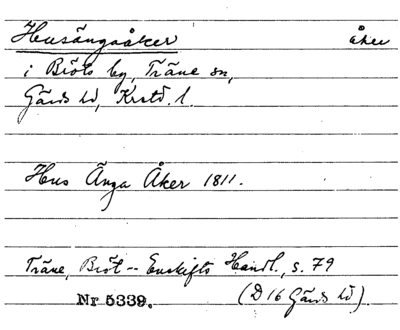 Husängaåker åker
i Bröts by, Träne sn,
Gärds hd, Krstd. l.
Hus Änga Åker 1811.
Träne, Bröt -- Enskifts Handl., s. 79
Nr 5339. (D 16 Gärds hd).